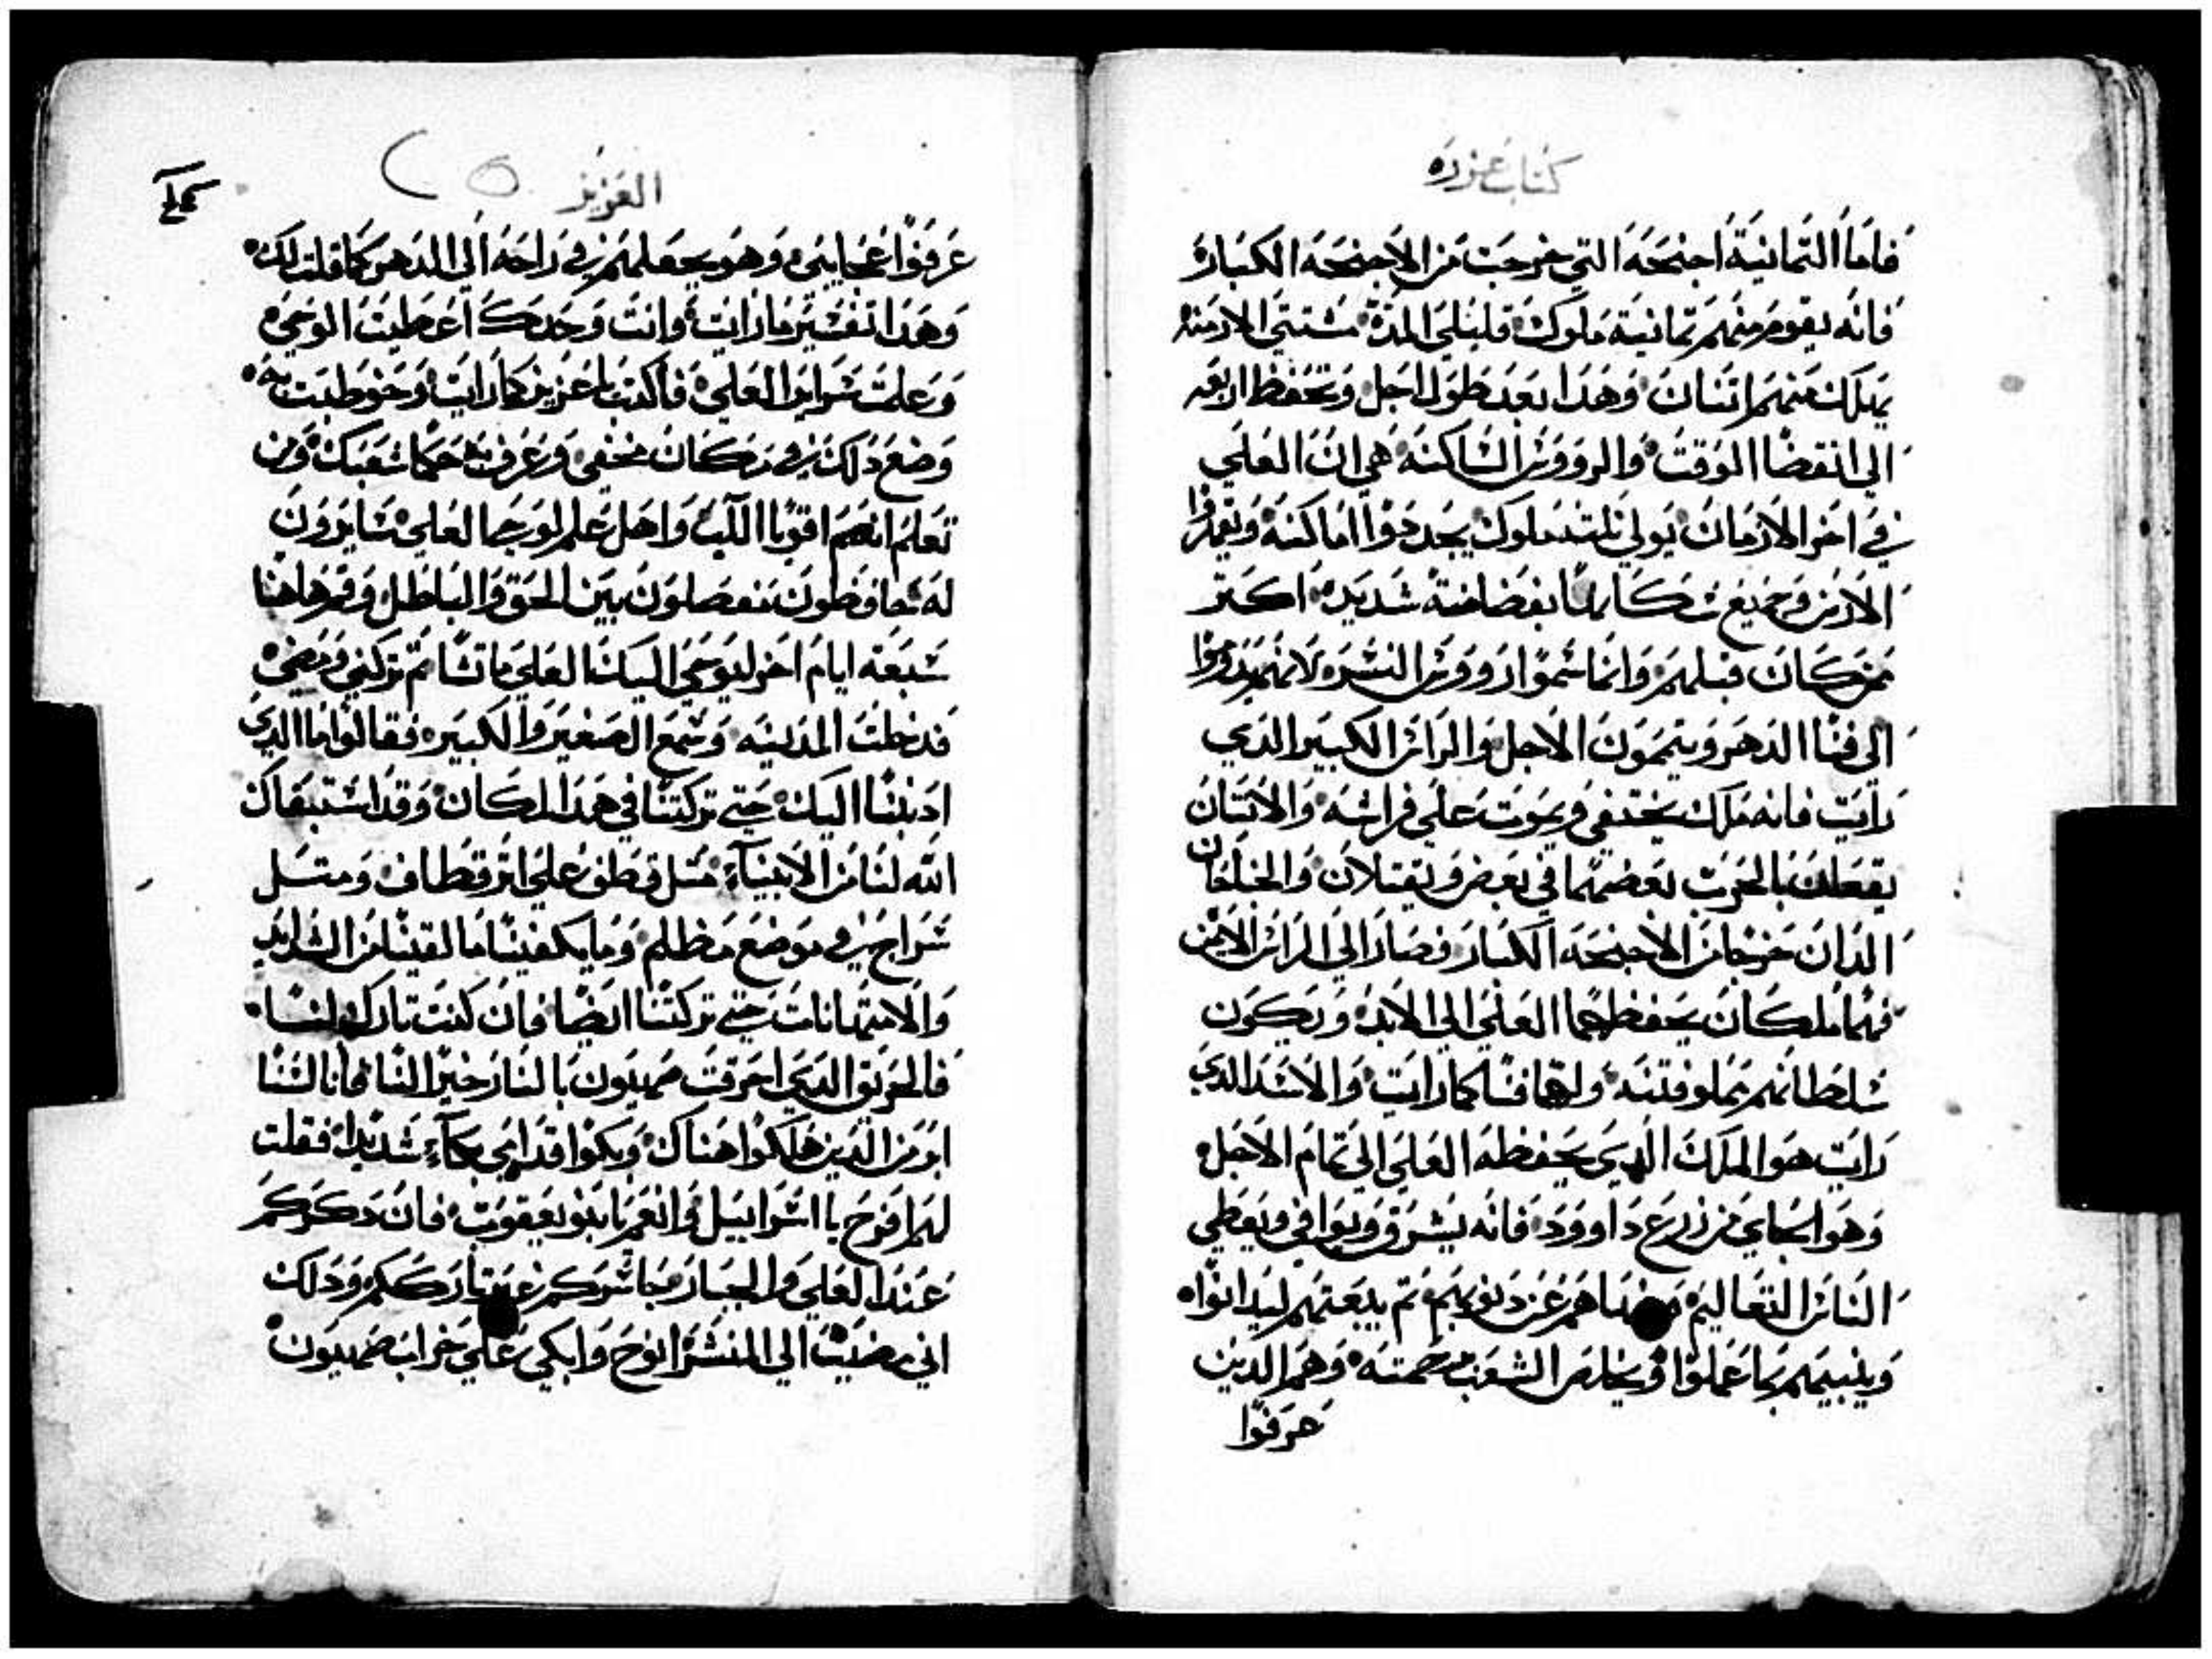 كتاب عزره
فاما التمانية اجنحه التي خرجت من الاجنحه الكبار
فانه يقوم منهم تمانية ملوك قليلي المدة مشتتي الازمنه
يملك منهم اتنان وهدا بعد طول اجل وتحفظ اربعه
الي انقضا الوقت والرووس الساكنه هي ان العلي
في اخر الازمان يولي تلته ملوك يجددوا اماكنه ويقهروا
الارض وجميع سكانها بفضاضة شديده اكتر
من كان قبلهم وانما سموا رووس النسر لانهم
الي فنا الدهر ويتمون الاجل والراس الكبير الدي
رايت فانه ملك يختفي ويموت علي فراشه والاتنان
يقعان بالحرب بعضهما في بعض ويقتلان والجناحان
الدان خرجا من الاجنحه الكبار فصارا الي الراس الايمن
فهما ملكان يحفظهما العلي الي الابد ويكون
سلطانهم مملو فتنه وانهما فنا كما رايت والاسد الدي
رايت هو الملك الدي يحفظه العلي الي تمام الاجل
وهو الجاي من زرع داوود فانه يشرق ويوافي ويعطي
الناس التعاليم هم عن دنوبهم تم يبعتهم ليدانوا
وينبيهم بما عملوا ويخلص الشعب برحمته وهم الدين
عرفوا
العزيز
عرفوا عجايبي وهو يجعلهم في راحه الي الدهر كما قلت لك
وهدا تفسير ما رايت وانت وحدك اعطيت الوحي
وعلمت سراير العلي فاكتب يا عزيز كما رايت وخوطبت به
وضع دلك في مكان مخفي وعرف به حكما شعبك ومن
تعلم انهم اقويا اللب واهل علم لوحي العلي سايرون
له حافظون يفصلون بين الحق والباطل وقم هاهنا
سبعة ايام اخر ليوحي اليك العلي ما تشا تم تركني ومضي
فدخلت المدينه وسمع الصغير والكبير فقالوا ما الدي
ادنبنا اليك حتي تركتنا في هدا المكان وقد استبقاك
الله لنا من الانبياء متل قطف علي اتر قطاف ومتل
سراج في موضع مظلم وما يكفينا ما لقينا من الشدايد
والامتهانات حتي تركتنا ايضا فان كنت تارك لنا
فالحريق الدي احرقت صهيون بالنار خيرا لنا فانا لسنا
ابر من الدين هلكوا هناك وبكوا قدامي بكاء شديدا فقلت
لهم افرح يا اسراييل وانعم يا بنو يعقوب فان دكركم
عند العلي والجبار تارككم ودلك
اني مضيت الي المنسر انوح وابكي علي خراب صهيون